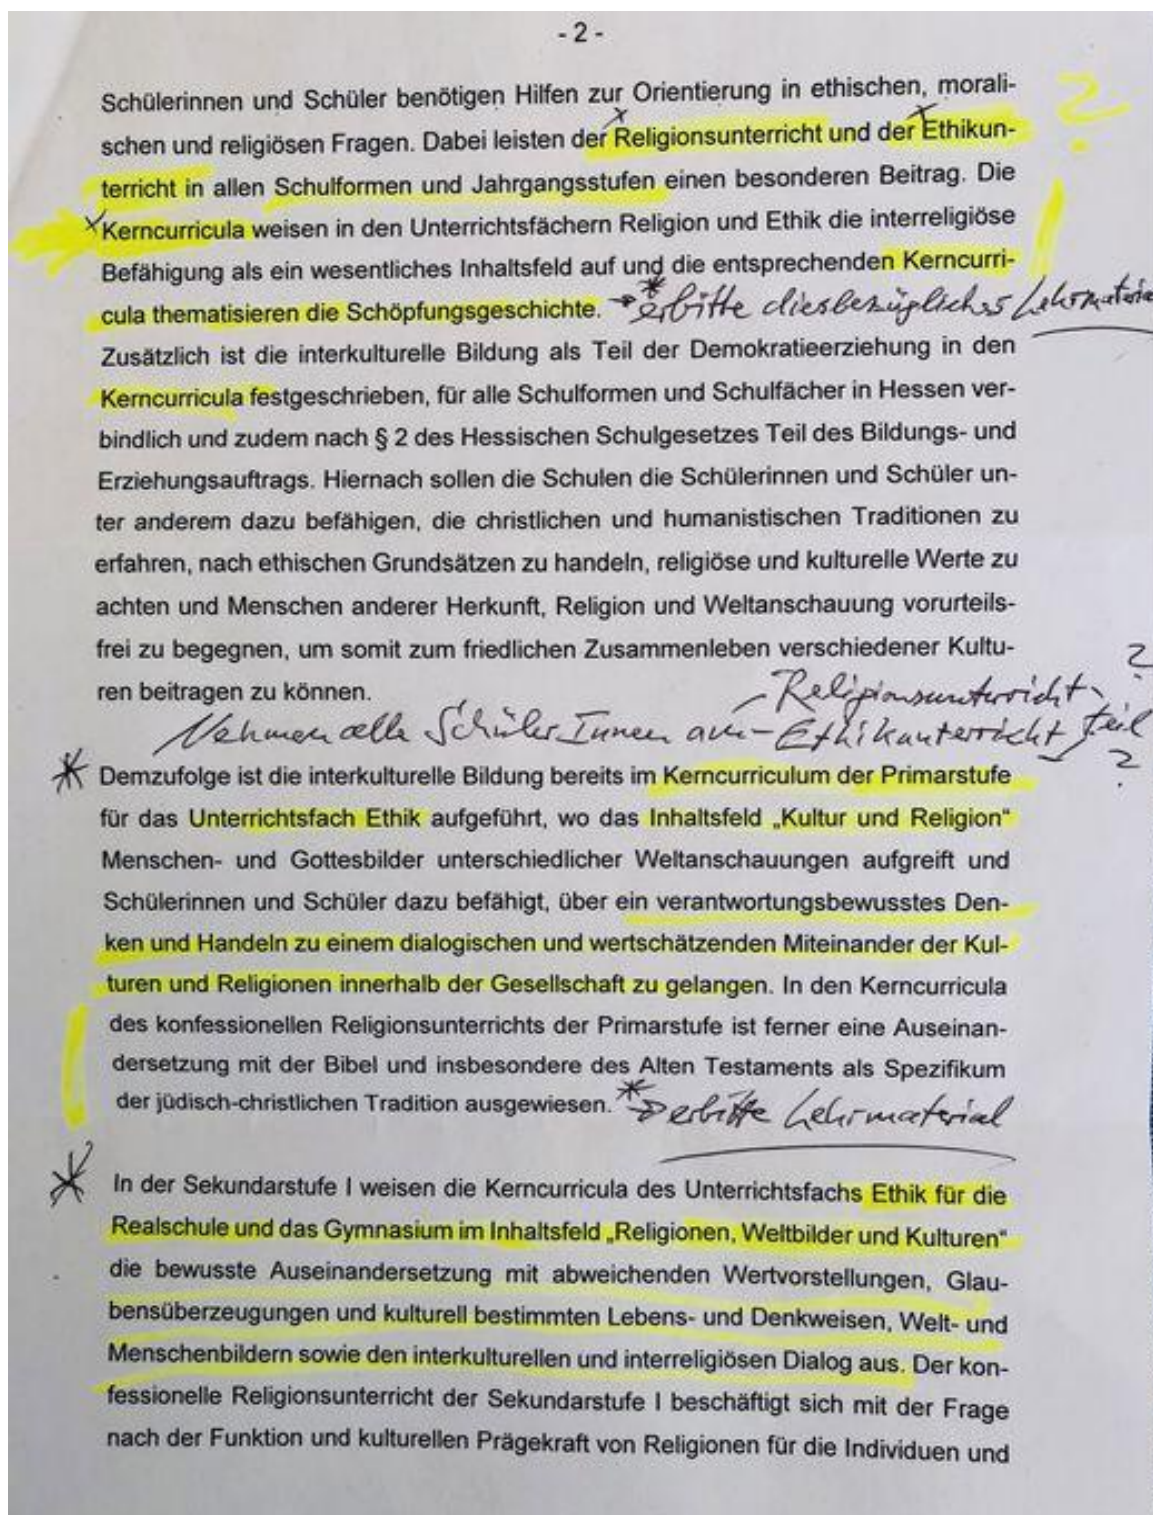 - 2 -
Schülerinnen und Schüler benötigen Hilfen zur Orientierung in ethischen, morali-
schen und religiösen Fragen. Dabei leisten der Religionsunterricht und der Ethikun-
?
terricht in allen Schulformen und Jahrgangsstufen einen besonderen Beitrag. Die
Kerncurricula weisen in den Unterrichtsfächern Religion und Ethik die interreligiöse
Befähigung als ein wesentliches Inhaltsfeld auf und die entsprechenden Kerncurri-
cula thematisieren die Schöpfungsgeschichte. erbitte diesbezügliches Lehrmateria
Zusätzlich ist die interkulturelle Bildung als Teil der Demokratieerziehung in den
Kerncurricula festgeschrieben, für alle Schulformen und Schulfächer in Hessen ver-
bindlich und zudem nach § 2 des Hessischen Schulgesetzes Teil des Bildungs- und
Erziehungsauftrags. Hiernach sollen die Schulen die Schülerinnen und Schüler un-
ter anderem dazu befähigen, die christlichen und humanistischen Traditionen zu
erfahren, nach ethischen Grundsätzen zu handeln, religiöse und kulturelle Werte zu
achten und Menschen anderer Herkunft, Religion und Weltanschauung vorurteils-
frei zu begegnen, um somit zum friedlichen Zusammenleben verschiedener Kultu-
ren beitragen zu können.
- Religionsunterricht ?
Nehmen alle SchülerInnen am - Ethikunterricht teil ?
* Demzufolge ist die interkulturelle Bildung bereits im Kerncurriculum der Primarstufe
für das Unterrichtsfach Ethik aufgeführt, wo das Inhaltsfeld „Kultur und Religion“
Menschen- und Gottesbilder unterschiedlicher Weltanschauungen aufgreift und
Schülerinnen und Schüler dazu befähigt, über ein verantwortungsbewusstes Den-
ken und Handeln zu einem dialogischen und wertschätzenden Miteinander der Kul-
turen und Religionen innerhalb der Gesellschaft zu gelangen. In den Kerncurricula
des konfessionellen Religionsunterrichts der Primarstufe ist ferner eine Auseinan-
dersetzung mit der Bibel und insbesondere des Alten Testaments als Spezifikum
der jüdisch-christlichen Tradition ausgewiesen. * erbitte Lehrmaterial
* In der Sekundarstufe I weisen die Kerncurricula des Unterrichtsfachs Ethik für die
Realschule und das Gymnasium im Inhaltsfeld „Religionen, Weltbilder und Kulturen“
die bewusste Auseinandersetzung mit abweichenden Wertvorstellungen, Glau-
bensüberzeugungen und kulturell bestimmten Lebens- und Denkweisen, Welt- und
Menschenbildern sowie den interkulturellen und interreligiösen Dialog aus. Der kon-
fessionelle Religionsunterricht der Sekundarstufe I beschäftigt sich mit der Frage
nach der Funktion und kulturellen Prägekraft von Religionen für die Individuen und